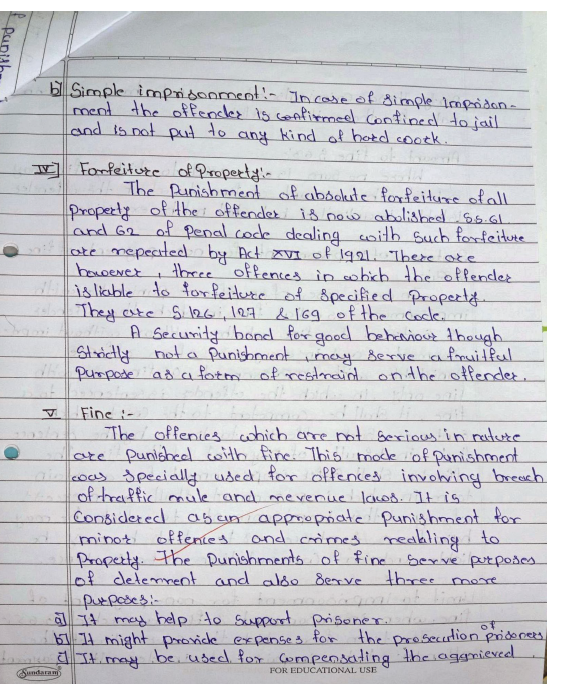 Punishm
b] Simple imprisonment:- In case of Simple Imprison-
ment the offender is confirmed confined to jail
and is not put to any kind of hard work.
IV] Forfeiture of Property:-
The Punishment of absolute forfeiture of all
Property of the offender is now abolished. SS.61
and 62 of Penal code dealing with Such forfeiture
are repeated by Act XVI of 1921. There are
however, three offences in which the offender
is liable to forfeiture of specified Property.
They are S.126, 127 & 169 of the Code.
A Security bond for good behaviour though
Strictly not a Punishment, may serve a fruitful
Purpose as a form of restraint on the offender.
V Fine :-
The offenies which are not serious in nature
are punished with fine. This mode of punishment
was specially used for offences involving breach
of traffic rule and revenue laws. It is
Considered as an appropriate Punishment for
minor offenies and crimes realiling to
Property. The Punishments of fine serve purposes
of deterrent and also serve three more
purposes:-
a] It may help to support prisoner.
b] It might provide expenses for the prosecution of prisoners
c] It may be used for compensating the aggrieved.
Sundaram
FOR EDUCATIONAL USE